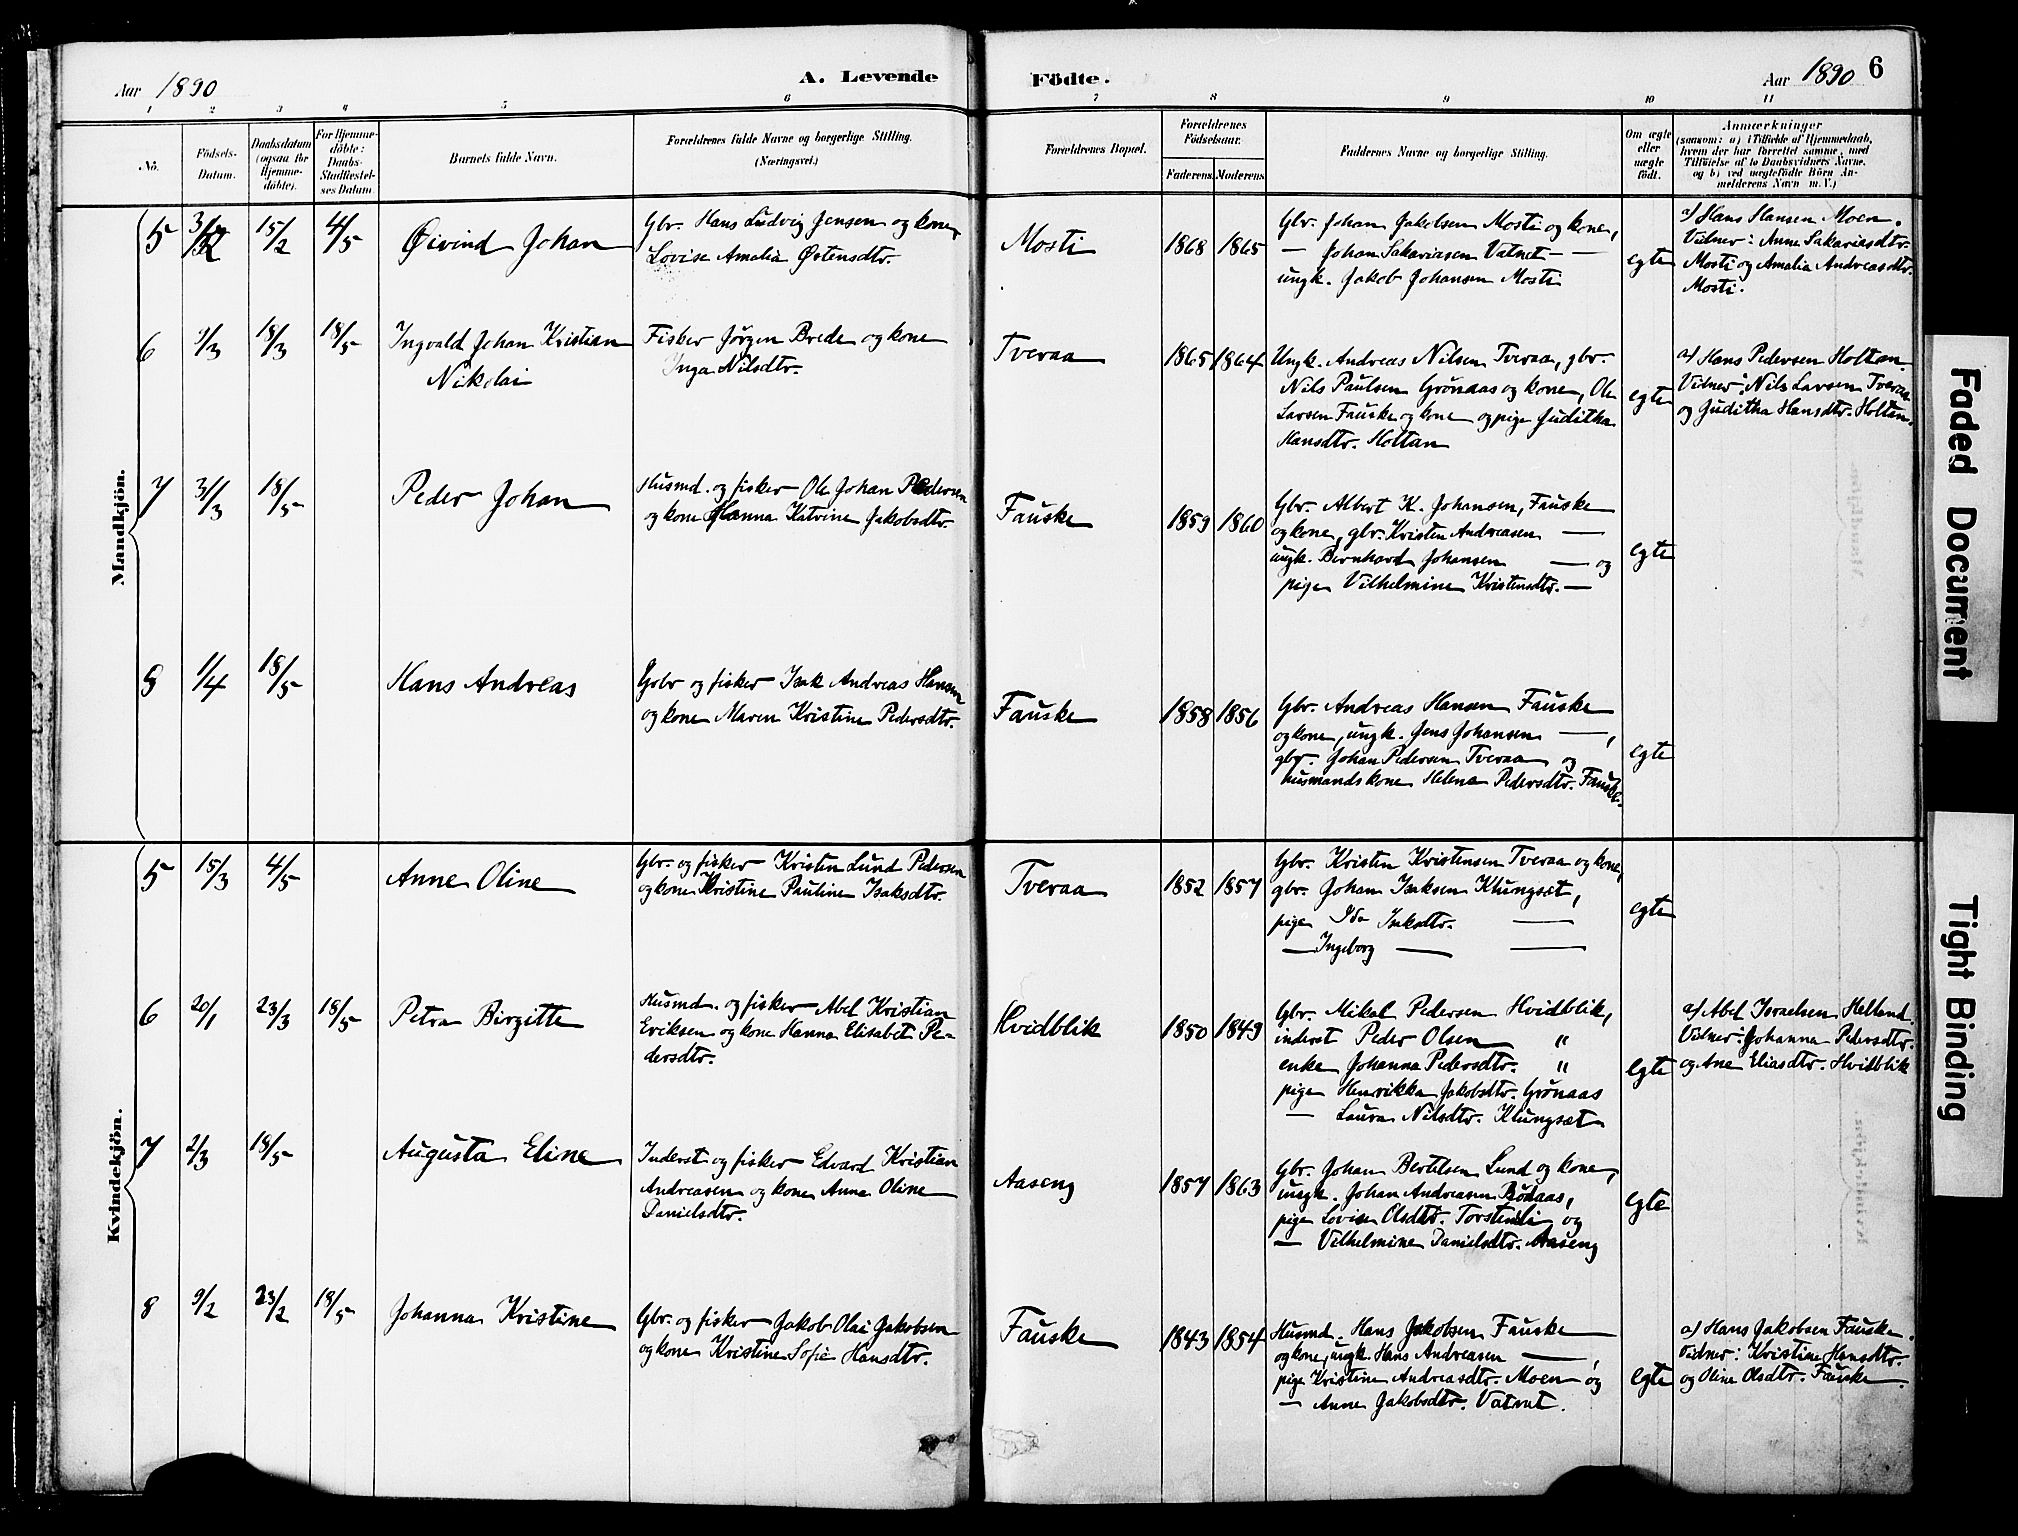 Aar 1890
A. Levende
Födte.
Aar 1890
6
1 2 3 4 5 6 7 8 9 10 11
No.
Födsels-
Datum.
Daabsdatum
(ogsaa for
Hjemme-
döbte).
For Hjemme-
döbte:
Daabs-
Stadfæstel-
ses Datum.
Barnets fulde Navn.
Forældrenes fulde Navne og borgerlige Stilling.
(Næringsvei.)
Forældrenes Bopæl.
Forældrenes
Födselsaar.
Faderens Moderens
Faddernes Navne og borgerlige Stilling.
Om ægte
eller
uægte
födt.
Anmærkninger
(saasom: a) i Tilfælde af Hjemmedaab,
hvem der har forrettet samme, med
Tilföielse af to Daabsvidners Navne,
og b) ved uægtefödte Börn An-
melderens Navn m. V.)
Mandkjön.
5
15/2
4/5
Øivind Johan
Gbr. Hans Ludvig Jensen og kone
Lovise Amalia Østensdtr.
Mosti
1868 1865
Gbr. Johan Jakobsen Mosti og kone,
— Johan Sakariasen Vatnet — —
ungk. Jakob Johansen Mosti
egte
a/ Hans Hansen Moen.
Vidner: Anne Sakariasdtr.
Mosti og Amalia Andreasdtr.
Mosti.
6
9/3
18/3
18/5
Ingvald Johan Kristian
Nikolai
Fisker Jørgen Brede og kone
Inga Nilsdtr.
Tveraa
1865 1864
Ungk. Andreas Nilsen Tveraa, gbr.
Nils Paulsen Grønaas og kone, Ole
Larsen Fauske og kone og pige Juditha
Hansdtr. Holtan
egte
a/ Hans Pedersen Holtan.
Vidner: Nils Larsen Tveraa
og Juditha Hansdtr. Holtan.
7
31/3
18/5
Peder Johan
Husmd. og fisker Ole Johan Pedersen
og kone Hanna Katrine Jakobsdtr.
Fauske
1859 1860
Gbr. Albert K. Johansen, Fauske
og kone, gbr. Kristen Andreasen —
ungk. Bernhard Johansen — og
pige Vilhelmine Kristensdtr. —
egte
8
1/4
18/5
Hans Andreas
Gbr og fisker Isak Andreas Hansen
og kone Maren Kristine Pedersdtr.
Fauske
1858 1856
Gbr. Andreas Hansen Fauske
og kone, ungk. Jens Johansen —,
gbr. Johan Pedersen Tveraa og
husmandskone Helena Pedersdtr. Fauske.
egte
Kvindekjön.
5
15/3
4/5
Anne Oline
Gbr. og fisker Kristen Lund Pedersen
og kone Kristine Pauline Isaksdtr.
Tveraa
1852 1857
Gbr. Kristen Kristensen Tveraa og kone,
gbr. Johan Isaksen Klungset,
pige Ida Isaksdtr. —
— Ingeborg — —
egte
6
20/1
23/3
18/5
Petra Birgitte
Husmd. og fisker Abel Kristian
Eriksen og kone Hanna Elisabet Pe-
dersdtr.
Hvidblik
1850 1849
Gbr. Mikal Pedersen Hvidblik,
inderst Peder Olsen "
enke Johanna Pedersdtr. "
pige Henrikka Jakobsdtr. Grønaas
— Laura Nilsdtr. Klungset
egte
a/ Abel Israelsen Helland.
Vidner: Johanna Pedersdtr.
og Ane Eliasdtr. Hvidblik
7
2/3
18/5
Augusta Eline
Inderst og fisker Edvard Kristian
Andreasen og kone Anna Oline
Danielsdtr.
Aaseng
1857 1863
Gbr. Johan Bertelsen Lund og kone,
ungk. Johan Andreasen
pige Lovise Olsdtr. Torstenli og
— Vilhelmine Danielsdtr. Aaseng
egte
8
9/2
23/2
18/5
Johanna Kristine
Gbr. og fisker Jakob Olai Jakobsen
og kone Kristine Sofie Hansdtr.
Fauske
1843 1854
Husmd. Hans Jakobsen Fauske
og kone, ungk. Hans Andreasen —,
pige Kristine Andreasdtr. Moen og
— Anne Jakobsdtr. Vatnet.
egte
a/ Hans Jakobsen Fauske.
Vidner: Kristine Hansdtr.
og Oline Olsdtr. Fauske.
Faded Document
Tight Binding